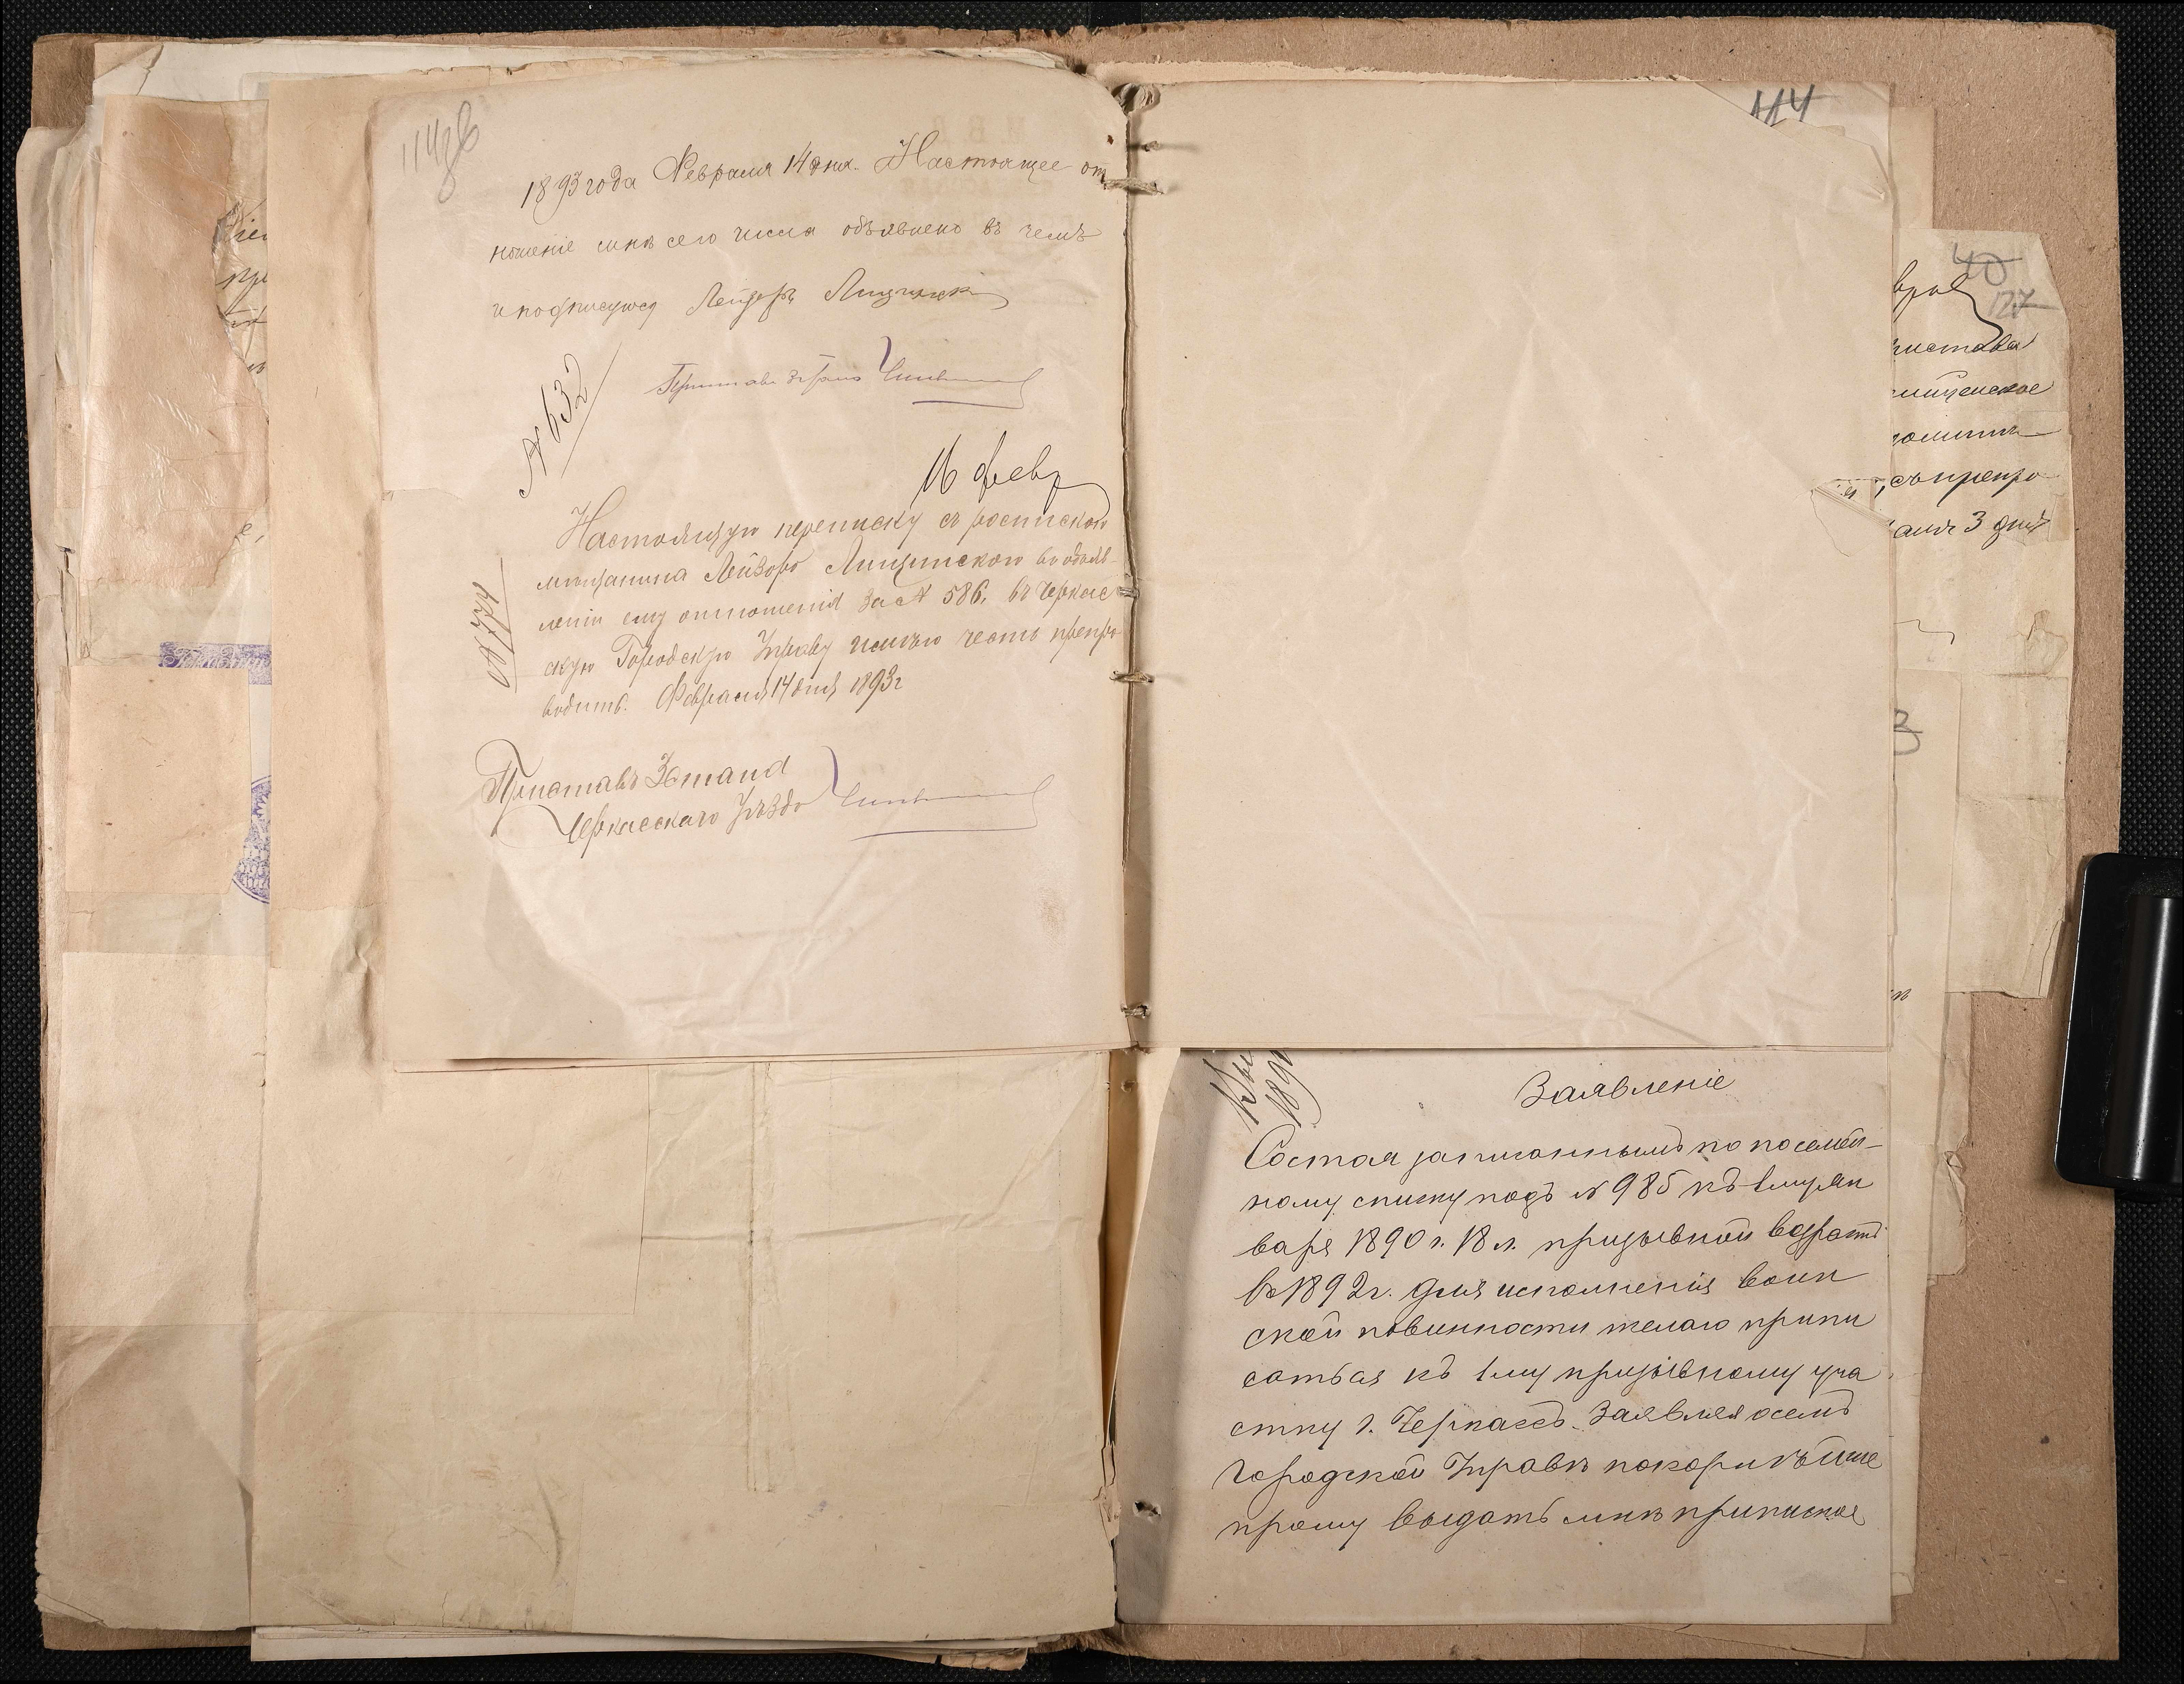 113об
1893 года Февраля 14 дня. Настоящее от
ношеніе мнѣ сего числа объявлено въ чемъ
и подписуюсь Лейзоръ Лищинскій
№ 632
Приставъ 3 стана
16 февр
Настоящую переписку съ роспискою
мѣщанина Лейзора Лищинскаго въ объяв
леніи ему отношенія за № 586, въ Черкас
скую Городскую Управу имѣю честь препро
водить. Февраля 14 дня 1893 г
№ 774
Приставъ 3 стана
Черкасскаго Уѣзда
114
40
127
пристава
3 дня
3
189
Заявленіе
Состоя записаннымъ по посемей-
ному списку подъ № 985 къ 1 му Ян
варя 1890 г. 18 л. призывной возрастъ
въ 1892 г. для исполненія воин
ской повинности желаю припи
саться къ 1 му призывному уча
стку г. Черкассъ. Заявляя о семъ
городской Управѣ покорнѣйше
прошу выдать мнѣ приписное